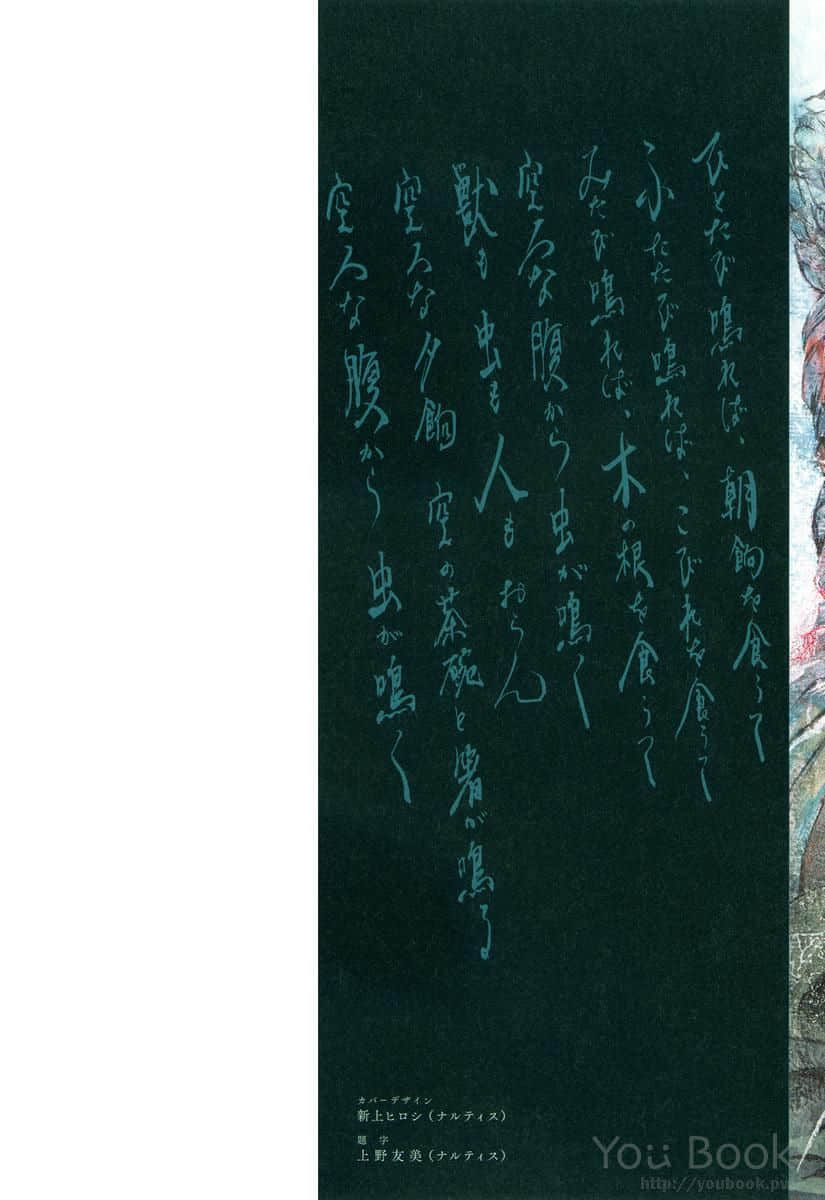 ひとたび鳴れば、朝餉を食うて
ふたたび鳴れば、こびれを食うて
みたび鳴れば、木の根を食うて
空ろな腹から虫が鳴く
獣も 虫も 人も おらん
空ろな夕餉 空の茶碗と箸が鳴る
空ろな腹から 虫が鳴く
カバーデザイン
新上ヒロシ（ナルティス）
題字
上野友美（ナルティス）
You Book
http://youbook.pw